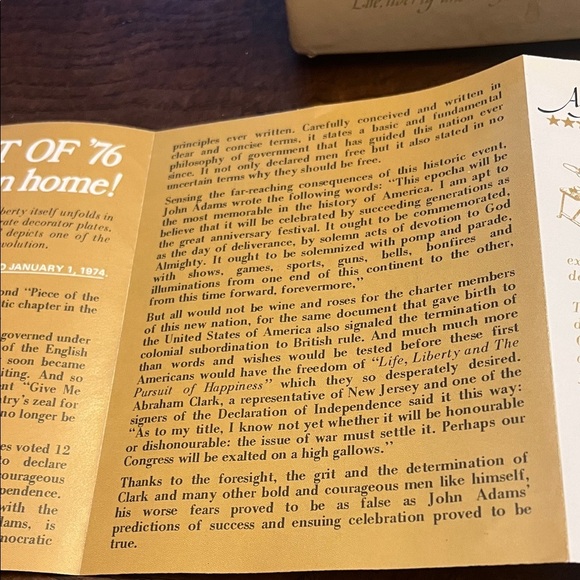 Life, liberty
T OF '76
n home!
berty itself unfolds in
rate decorator plates.
depicts one of the
volution.
D JANUARY 1, 1974.
ond "Piece of the
tic chapter in the
governed under
of the English
soon became
iting. And so
nt "Give Me
try's zeal for
no longer be
es voted 12
o declare
ourageous
pendence.
with the
dams, is
mocratic
principles ever written. Carefully conceived and written in
clear and concise terms, it states a basic and fundamental
philosophy of government that has guided this nation ever
since. It not only declared men free but it also stated in no
uncertain terms why they should be free.
Sensing the far-reaching consequences of this historic event,
John Adams wrote the following words: "This epocha will be
the most memorable in the history of America. I am apt to
believe that it will be celebrated by succeeding generations as
the great anniversary festival. It ought to be commemorated,
as the day of deliverance, by solemn acts of devotion to God
Almighty. It ought to be solemnized with pomp and parade,
with shows, games, sports, guns, bells, bonfires and
illuminations from one end of this continent to the other,
from this time forward, forevermore,"
But all would not be wine and roses for the charter members
of this new nation, for the same document that gave birth to
the United States of America also signaled the termination of
colonial subordination to British rule. And much much more
than words and wishes would be tested before these first
Americans would have the freedom of "Life, Liberty and The
Pursuit of Happiness" which they so desperately desired.
Abraham Clark, a representative of New Jersey and one of the
signers of the Declaration of Independence said it this way:
"As to my title, I know not yet whether it will be honourable
or dishonourable: the issue of war must settle it. Perhaps our
Congress will be exalted on a high gallows."
Thanks to the foresight, the grit and the determination of
Clark and many other bold and courageous men like himself,
his worse fears proved to be as false as John Adams'
predictions of success and ensuing celebration proved to be
true.
A
ex
de
T